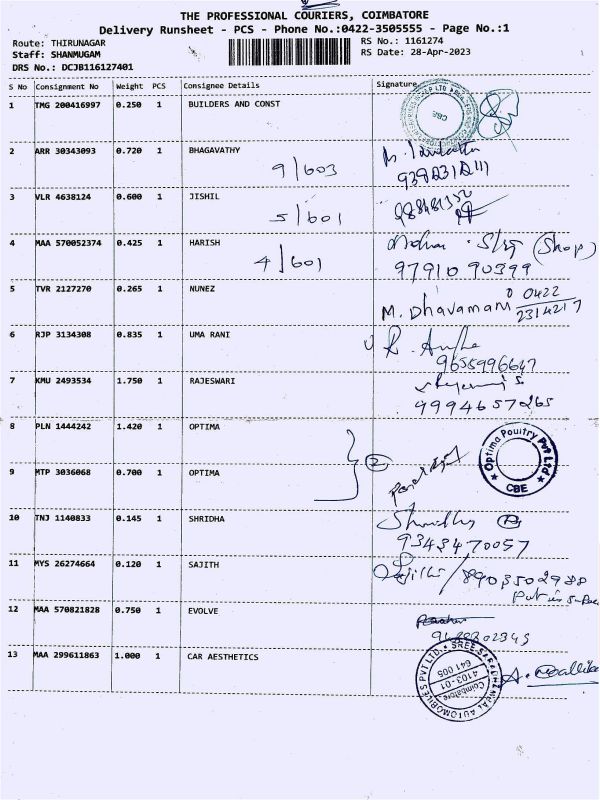 THE PROFESSIONAL COURIERS, COIMBATORE
Delivery Runsheet - PCS - Phone No.:0422-3505555 - Page No.:1
Route: THIRUNAGAR RS No.: 1161274
Staff: SHANMUGAM RS Date: 28-Apr-2023
DRS No.: DCJB116127401
S No Consignment No Weight PCS Consignee Details Signature
1 TMG 200416997 0.250 1 BUILDERS AND CONST
CBE
2 ARR 30343093 0.720 1 BHAGAVATHY
9/603
3 VLR 4638124 0.600 1 JISHIL
5/601
4 MAA 570052374 0.425 1 HARISH (Shop)
4/601 97910 90399
5 TVR 2127270 0.265 1 NUNEZ
M. Dhavamani 0422
2314217
6 RJP 3134308 0.835 1 UMA RANI
9655996647
7 KMU 2493534 1.750 1 RAJESWARI
9994657265
8 PLN 1444242 1.420 1 OPTIMA
Optima Poultry Pvt Ltd
CBE
2
9 MTP 3036068 0.700 1 OPTIMA
10 TNJ 1140833 0.145 1 SHRIDHA
9343470057
11 MYS 26274664 0.120 1 SAJITH
8903502988
12 MAA 570821828 0.750 1 EVOLVE
13 MAA 299611863 1.000 1 CAR AESTHETICS
AUTOMOBILES PVT LTD.
4103-01
Coimbatore
641 005